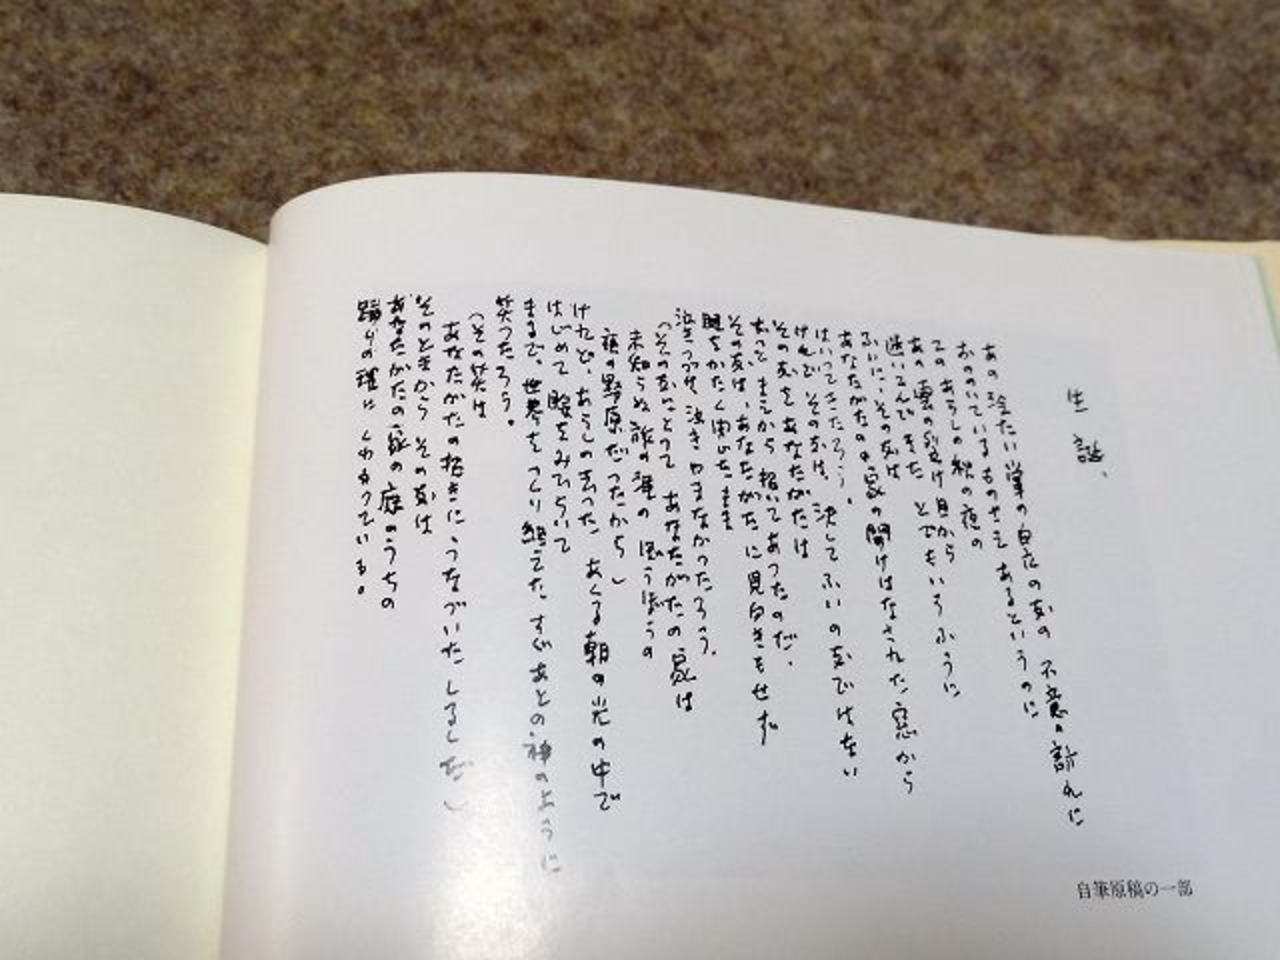 生誕
あの冷たい掌の白衣の女の 不意の訪れに
おののいているものさえ あるというのに
このあらしの秋の夜の
あの雲の裂け目から とでもいうふうに
迷いこんできた
ふいに、その女は
あなたがたの家の開けはなされた窓から
はいってきたろう。
けれど その女は、決して ふいの女ではない
その女を あなたがたは
ずっと まえから 招いてあったのだ、
その女は、あなたがたに見向きもせず
眼をかたく閉じたまま
泣きつづけ 泣きやまなかったろう。
(その女にとって あなたがたの家は
未知らぬ旅の涯の ぼうぼうの
夜の野原だったから)
けれど、あらしの去った あくる朝の光の中で
はじめて 眼をみひらいて
まるで、世界をつくり終えた すぐあとの神のように
笑ったろう。
(その笑は
あなたがたの招きに うなづいた しるしだ)
そのときから その女は
あなたがたの家の庭のうちの
踊りの環に くわわっている。
自筆原稿の一部